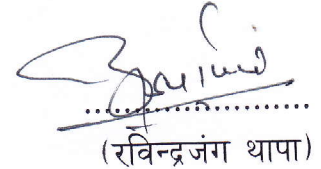 (रविन्द्रजंग थापा)